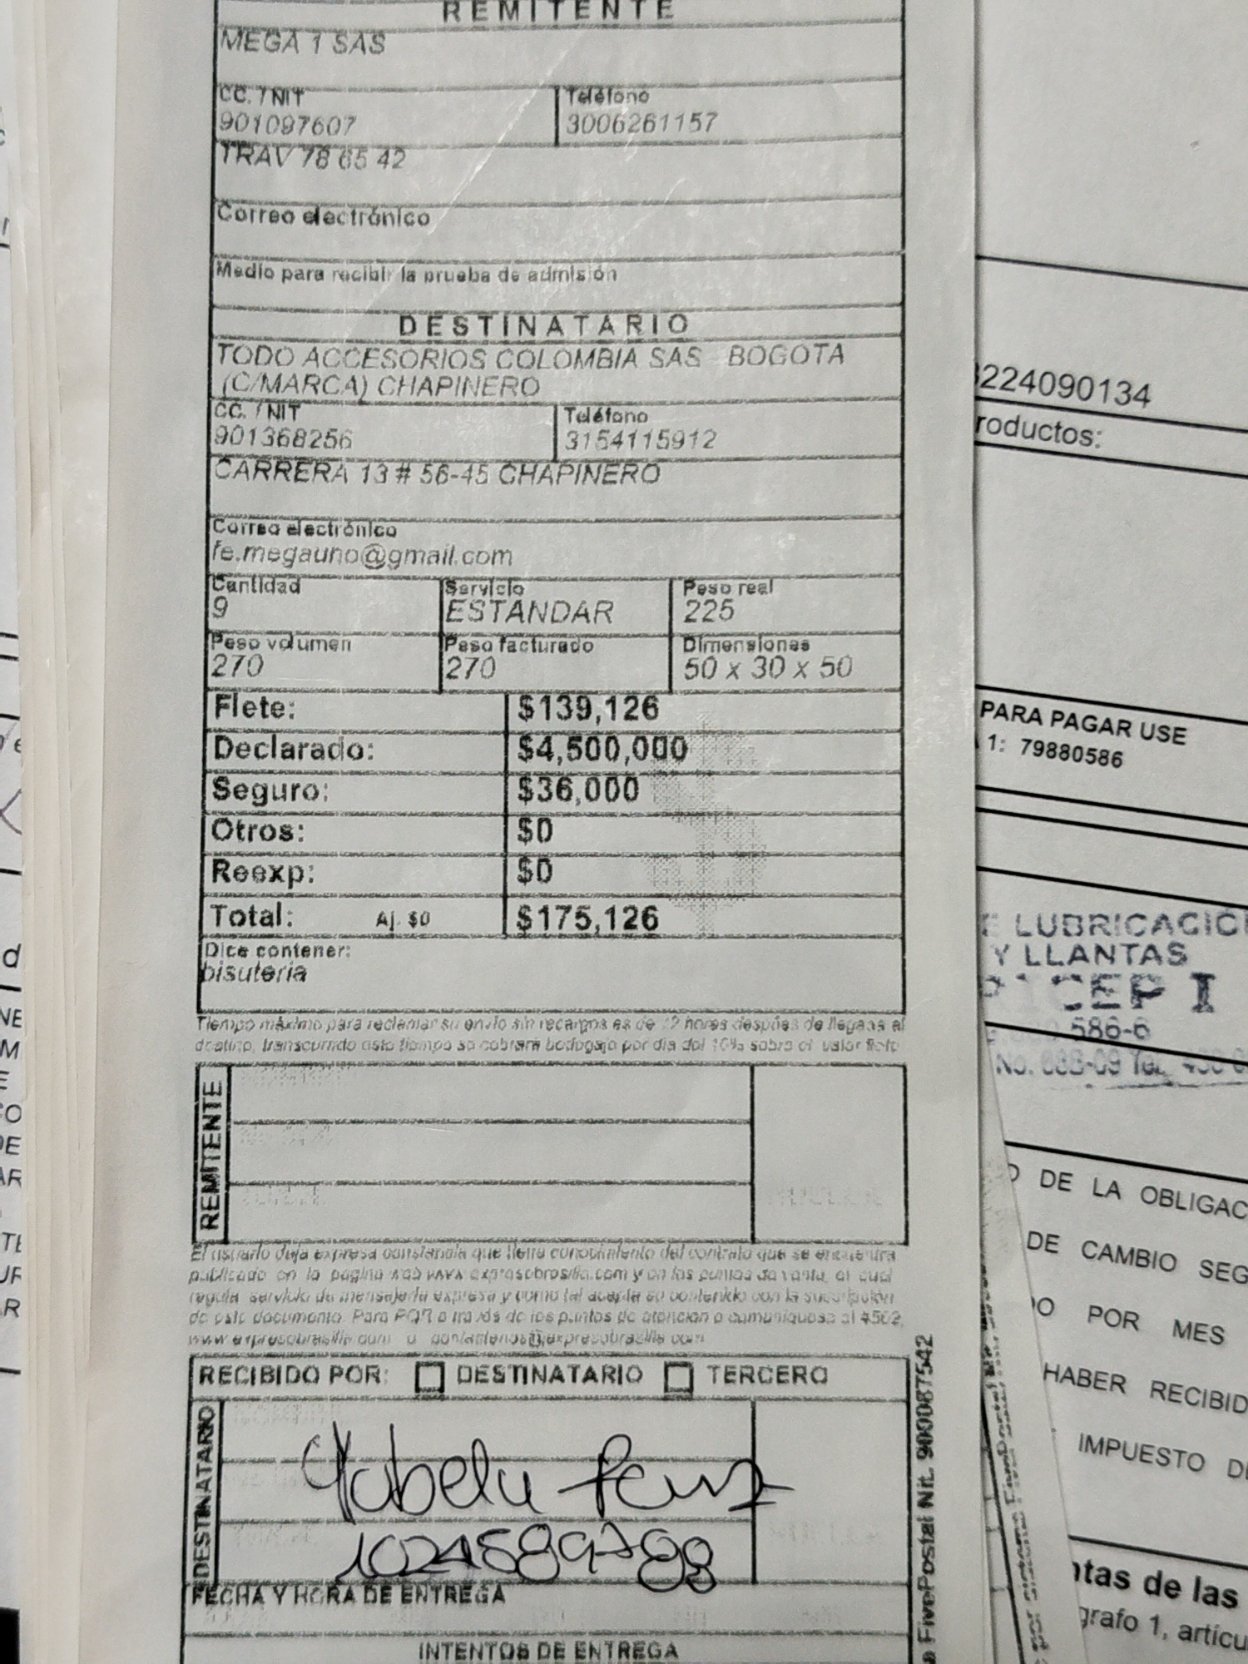 REMITENTE
MEGA 1 SAS
CC. / NIT
901097607
Teléfono
3006261157
TRAV 78 65 42
Correo electrónico
Medio para recibir la prueba de admisión
DESTINATARIO
TODO ACCESORIOS COLOMBIA SAS BOGOTA
(C/MARCA) CHAPINERO
CC. / NIT
901368256
Teléfono
3154115912
CARRERA 13 # 56-45 CHAPINERO
Correo electrónico
fe.megauno@gmail.com
Cantidad
9
Servicio
ESTANDAR
Peso real
225
Peso volumen
270
Peso facturado
270
Dimensiones
50 x 30 x 50
Flete: $139,126
Declarado: $4,500,000
Seguro: $36,000
Otros: $0
Reexp: $0
Total: Aj. $0 $175,126
Dice contener:
bisuteria
Tiempo máximo para reclamar su envío sin recargos es de 72 horas después de llegada al
destino, transcurrido este tiempo se cobrará bodegaje por día del 10% sobre el valor flete
REMITENTE
El usuario deja expresa constancia que tiene conocimiento del contrato que se encuentra
publicado en la pagina web www.expresobrasilia.com y en los puntos de venta, el cual
regula servicio de mensajería expresa y como tal acepta su contenido con la suscripción
de este documento. Para PQR a través de los puntos de atención o comuníquese al #502,
www.expresobrasilia.com o contactenos@expresobrasilia.com
RECIBIDO POR: DESTINATARIO TERCERO
DESTINATARIO
1024589788
FECHA Y HORA DE ENTREGA
INTENTOS DE ENTREGA
FivePostal Nit. 900087542
224090134
roductos:
PARA PAGAR USE
1: 79880586
E LUBRICACIO
Y LLANTAS
CEP I
586-6
DE LA OBLIGAC
DE CAMBIO SEG
O POR MES
HABER RECIBID
IMPUESTO D
ntas de las
grafo 1, artícu